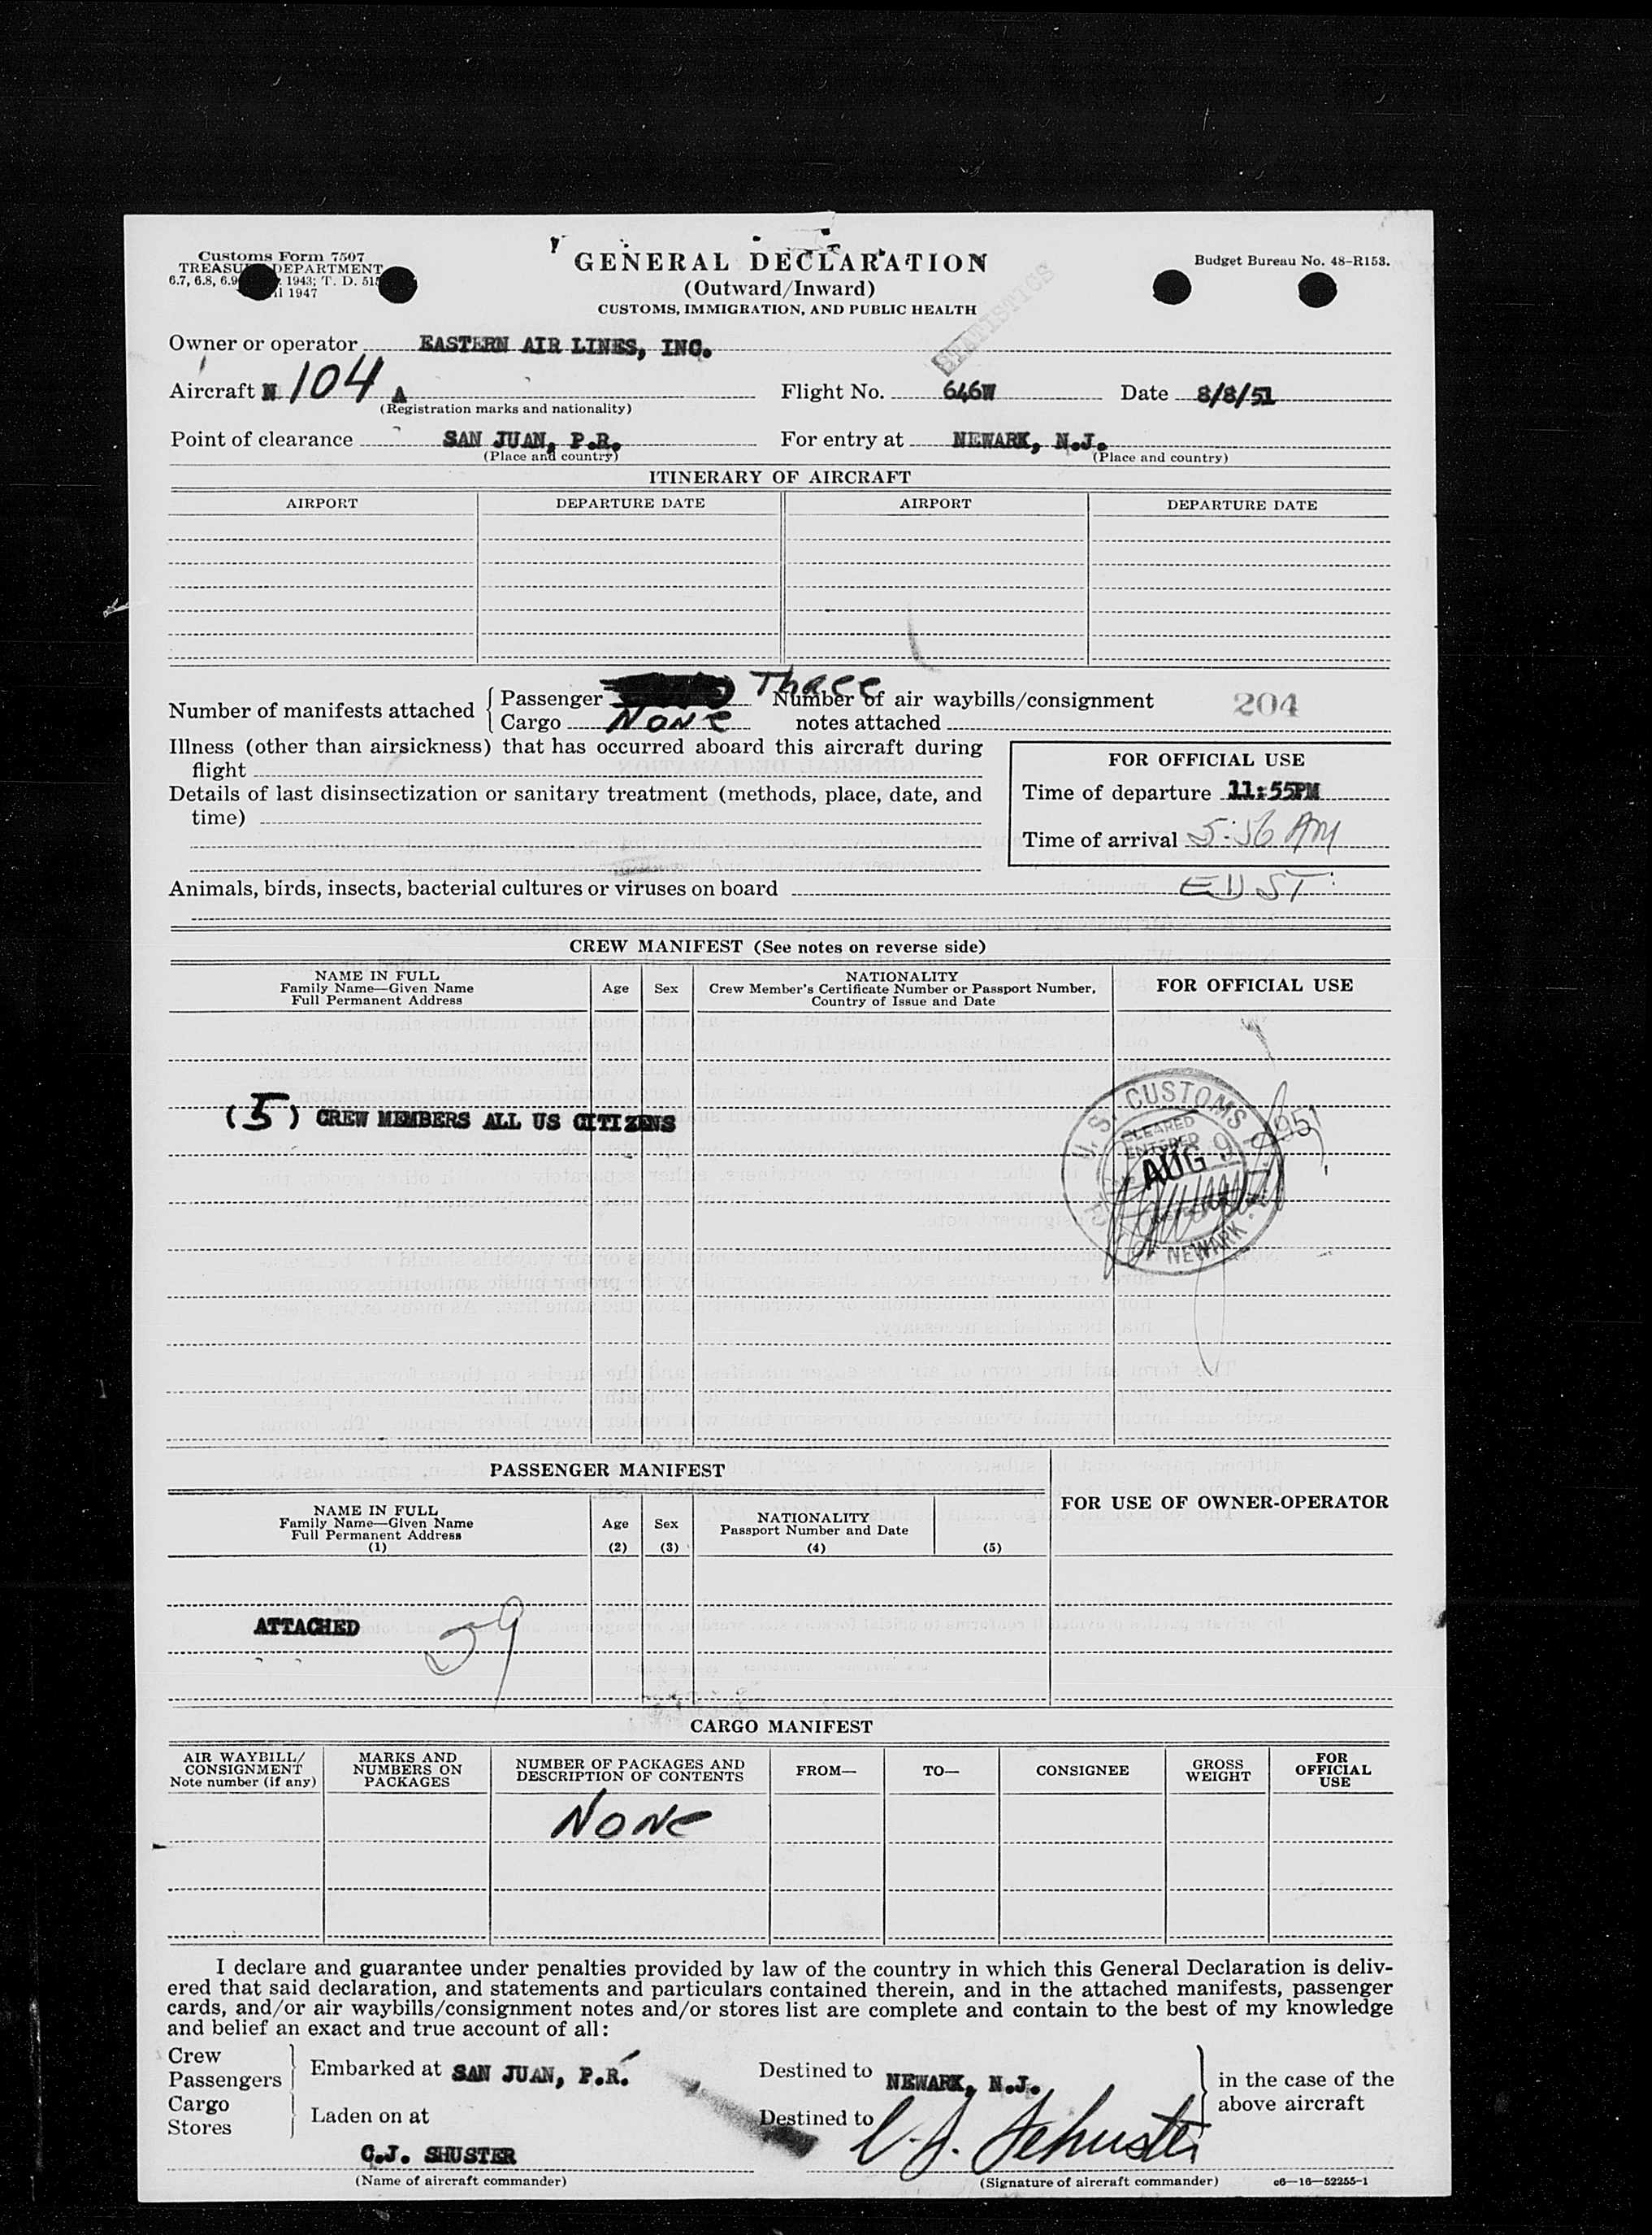 Customs Form 7507
TREASU DEPARTMENT
6.7, 6.8, 6.9 1943; T. D. 515
1947
GENERAL DECLARATION
(Outward/Inward)
CUSTOMS, IMMIGRATION, AND PUBLIC HEALTH
Budget Bureau No. 48-R153.
STATISTICS
Owner or operator EASTERN AIR LINES, INC.
Aircraft N 104 A Flight No. 646W Date 8/8/51
(Registration marks and nationality)
Point of clearance SAN JUAN, P.R. For entry at NEWARK, N.J.
(Place and country) (Place and country)
ITINERARY OF AIRCRAFT
AIRPORT DEPARTURE DATE AIRPORT DEPARTURE DATE
Number of manifests attached { Passenger Three Number of air waybills/consignment 204
Cargo NONE notes attached
Illness (other than airsickness) that has occurred aboard this aircraft during
flight
Details of last disinsectization or sanitary treatment (methods, place, date, and
time)
FOR OFFICIAL USE
Time of departure 11:55PM
Time of arrival 5:56 AM
Animals, birds, insects, bacterial cultures or viruses on board EDST
CREW MANIFEST (See notes on reverse side)
NAME IN FULL
Family Name—Given Name
Full Permanent Address
Age Sex
NATIONALITY
Crew Member's Certificate Number or Passport Number,
Country of Issue and Date
FOR OFFICIAL USE
(5) CREW MEMBERS ALL US CITIZENS
U.S. CUSTOMS
CLEARED
ENTERED
AUG 9 1951
OF NEWARK
PASSENGER MANIFEST
NAME IN FULL
Family Name—Given Name
Full Permanent Address
(1)
Age
(2)
Sex
(3)
NATIONALITY
Passport Number and Date
(4)
(5)
FOR USE OF OWNER-OPERATOR
ATTACHED 59
CARGO MANIFEST
AIR WAYBILL/
CONSIGNMENT
Note number (if any)
MARKS AND
NUMBERS ON
PACKAGES
NUMBER OF PACKAGES AND
DESCRIPTION OF CONTENTS
FROM—
TO—
CONSIGNEE
GROSS
WEIGHT
FOR
OFFICIAL
USE
NONE
I declare and guarantee under penalties provided by law of the country in which this General Declaration is deliv-
ered that said declaration, and statements and particulars contained therein, and in the attached manifests, passenger
cards, and/or air waybills/consignment notes and/or stores list are complete and contain to the best of my knowledge
and belief an exact and true account of all:
Crew
Passengers
Embarked at SAN JUAN, P.R. Destined to NEWARK, N.J.
in the case of the
above aircraft
Cargo
Stores
Laden on at Destined to
C.J. SHUSTER C. J. Schuster
(Name of aircraft commander) (Signature of aircraft commander) c6—16—52255-1